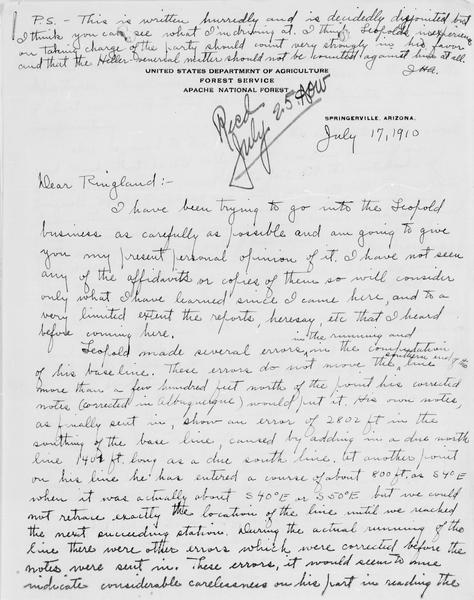 P.S. - This is written hurriedly and is decidedly disjointed but
I think you can see what I'm driving at. I think Leopold's inexperience
on taking charge of the party should count very strongly in his favor
and that the Heller - Osevenal matter should not be counted against him at all.
J.H.A.
UNITED STATES DEPARTMENT OF AGRICULTURE
FOREST SERVICE
APACHE NATIONAL FOREST
Recd
July 25
SPRINGERVILLE, ARIZONA.
July 17, 1910
Dear Ringland:-
I have been trying to go into the Leopold
business as carefully as possible and am going to give
you my present personal opinion of it. I have not seen
any of the affidavits or copies of them so will consider
only what I have learned since I came here, and to a
very limited extent the reports, heresay, etc that I heard
before coming here.
Leopold made several errors, in the running and in the computation
of his base line. These errors do not move the southern end of the line
more than a few hundred feet north of the point his corrected
notes (corrected in Albuquerque) would put it. His own notes,
as finally sent in, show an error of 2802 ft in the
southing of the base line, caused by adding in a due north
line 1401 ft. long as a due south line. At another point
on his line he has entered a course of about 800 ft. as S 4° E
when it was actually about S 40° E or S 50° E but we could
not retrace exactly the location of the line until we reached
the next succeeding station. During the actual running of the
line there were other errors which were corrected before the
notes were sent in. These errors, it would seem to me
indicate considerable carelessness on his part in reading the